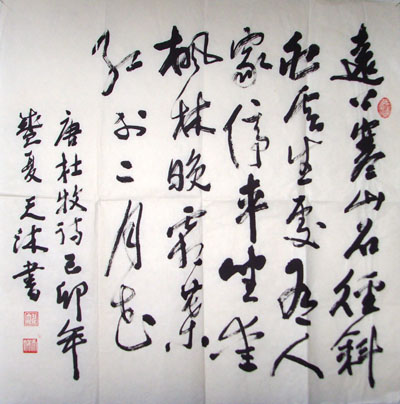 遠上寒山石徑斜
白雲生處有人
家停車坐愛
楓林晚霜葉
紅於二月花
唐杜牧詩己卯年
盛夏天沐書